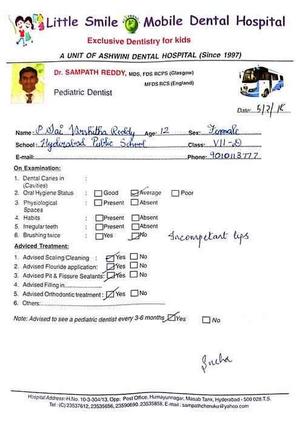 Little Smile Mobile Dental Hospital
Exclusive Dentistry for kids
A UNIT OF ASHWINI DENTAL HOSPITAL (Since 1997)
Dr. SAMPATH REDDY, MDS, FDS RCPS (Glasgow)
MFDS RCS (England)
Pediatric Dentist
Date: 5/2/18
Name: P. Sai Varshitha Reddy Age: 12 Sex: Female
School: Hyderabad Public School Class: VII-D
E-mail: Phone: 9010113777
On Examination:
1. Dental Caries in : (Cavities)
2. Oral Hygiene Status : Good Average Poor
3. Physiological Spaces : Present Absent
4. Habits : Present Absent
5. Irregular teeth : Present Absent
6. Brushing twice : Yes No
Incompetant lips
Adviced Treatment:
1. Advised Scaling/Cleaning : Yes No
2. Advised Flouride application: Yes No
3. Advised Pit & Fissure Sealants: Yes No
4. Advised Filling in
5. Advised Orthodontic treatment : Yes No
6. Others:
Note: Advised to see a pediatric dentist every 3-6 months Yes No
Sneha
Hospital Address: H.No. 10-3-304/13, Opp. Post Office, Humayunnagar, Masab Tank, Hyderabad - 500 028 T.S.
Tel: (C) 23537612, 23535656, 23590690, 23535858, E-mail : sampathchenuku@yahoo.com